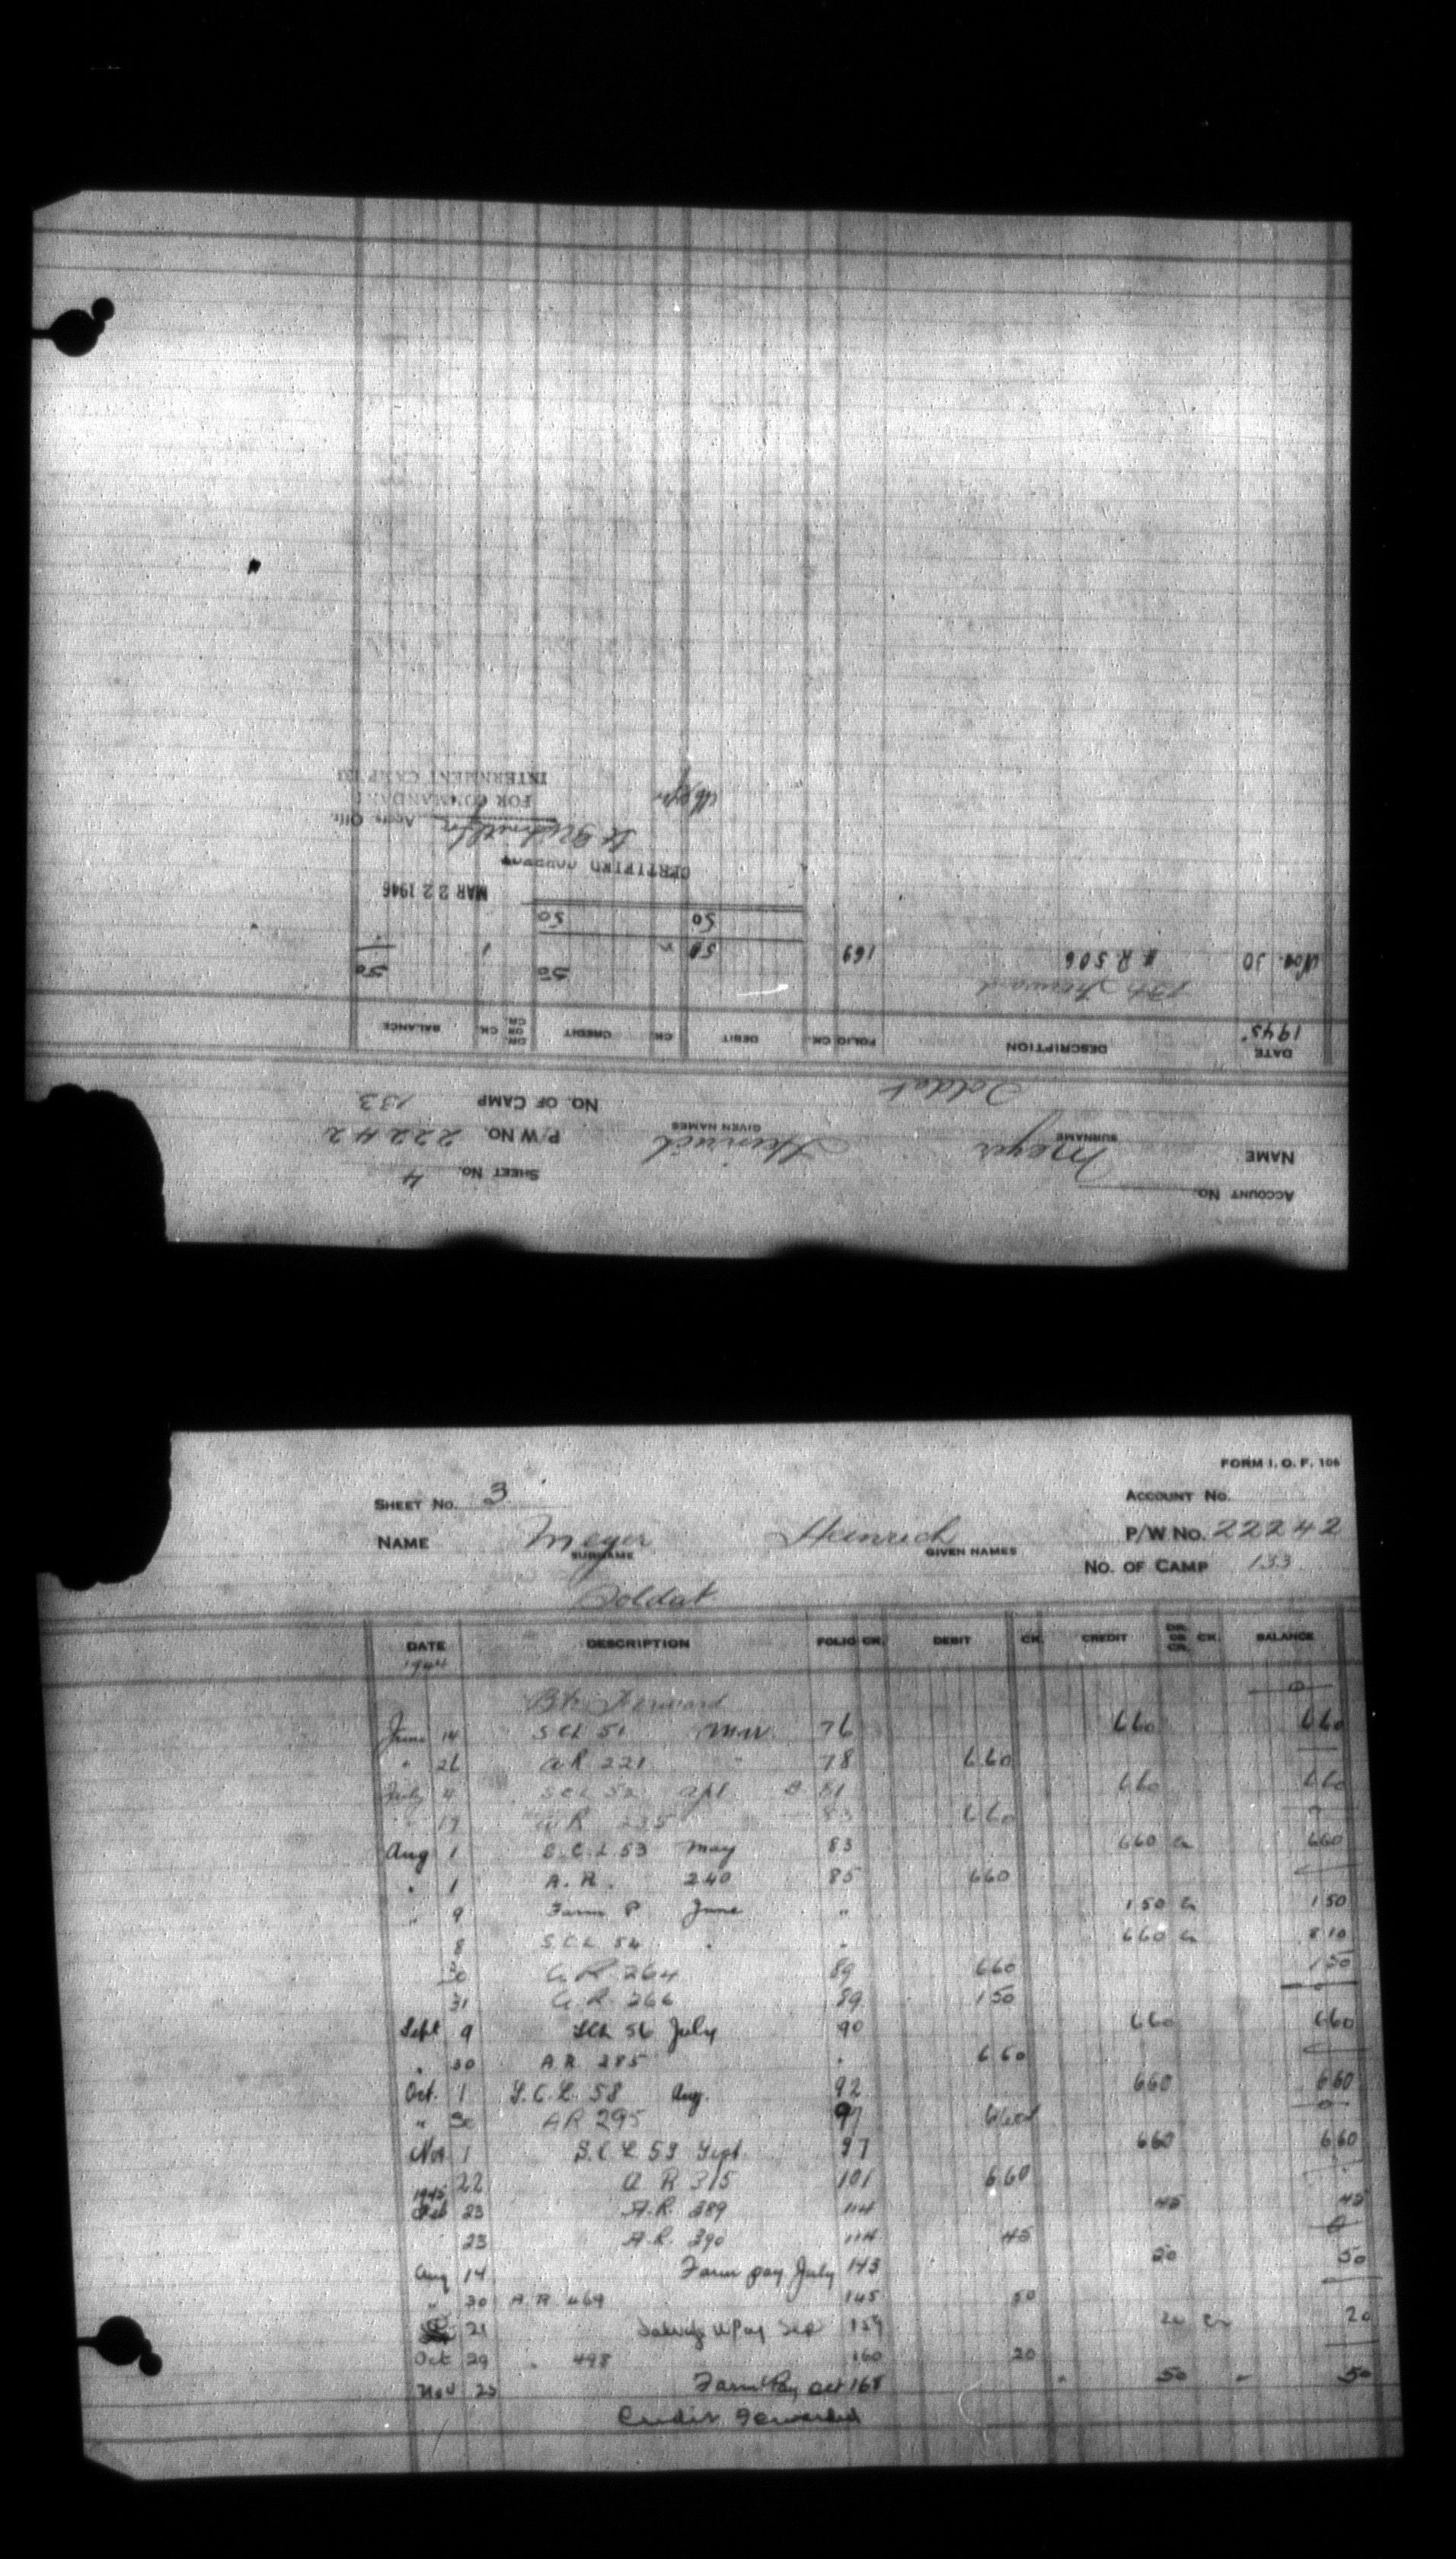 SHEET No. 4
ACCOUNT No.
NAME Meyer Heinrich P/W No. 22242
SURNAME GIVEN NAMES
Soldat NO. OF CAMP 133
DATE DESCRIPTION FOLIO CK. DEBIT CK. CREDIT DR. OR CR. CK. BALANCE
1945
Forward 50 50
Nov. 30 506 169 50
50 50
MAR 22 1946
CERTIFIED
Accts. Offr.
FOR COMMANDANT
INTERNMENT CAMP
FORM I. O. F. 106
SHEET No. 3 ACCOUNT No.
NAME Meyer Heinrich P/W No. 22242
SURNAME GIVEN NAMES
NO. OF CAMP 133
Soldat
DATE DESCRIPTION FOLIO CK. DEBIT CK. CREDIT DR. OR CR. CK. BALANCE
1944
Forward 0
June 14 SCL 51 Mar 76 660 660
" 26 A R 221 78 660
July 4 SCL 52 Apl 81 660 660
17 A R 235 83 660
Aug 1 S.C.L 53 May 83 660 Cr 660
" 1 A. R. 240 85 660
" 9 Farm P June " 150 Cr 150
8 S.C.L 54 " 660 Cr 810
30 A R 264 89 660 150
31 A. R. 266 89 150 0
Sept 9 SCL 56 July 90 660 660
" 30 A.R. 285 " 660
Oct. 1 S.C.L. 58 Aug. 92 660 660
" 30 AR 295 97 660 0
Nov 1 S.C.L 59 Sept. 97 660 660
22 A R 315 101 660
1945
Feb 23 A.R. 389 114 45 45
23 A.R. 390 114 45 0
Aug 14 Farm pay July 143 50 50
" 30 A.R. 469 145 50
21 Pay Sep 159 20 Cr 20
Oct 29 " 498 160 20
Nov 23 Farm Pay Oct 168 50 50
Credit Forwarded